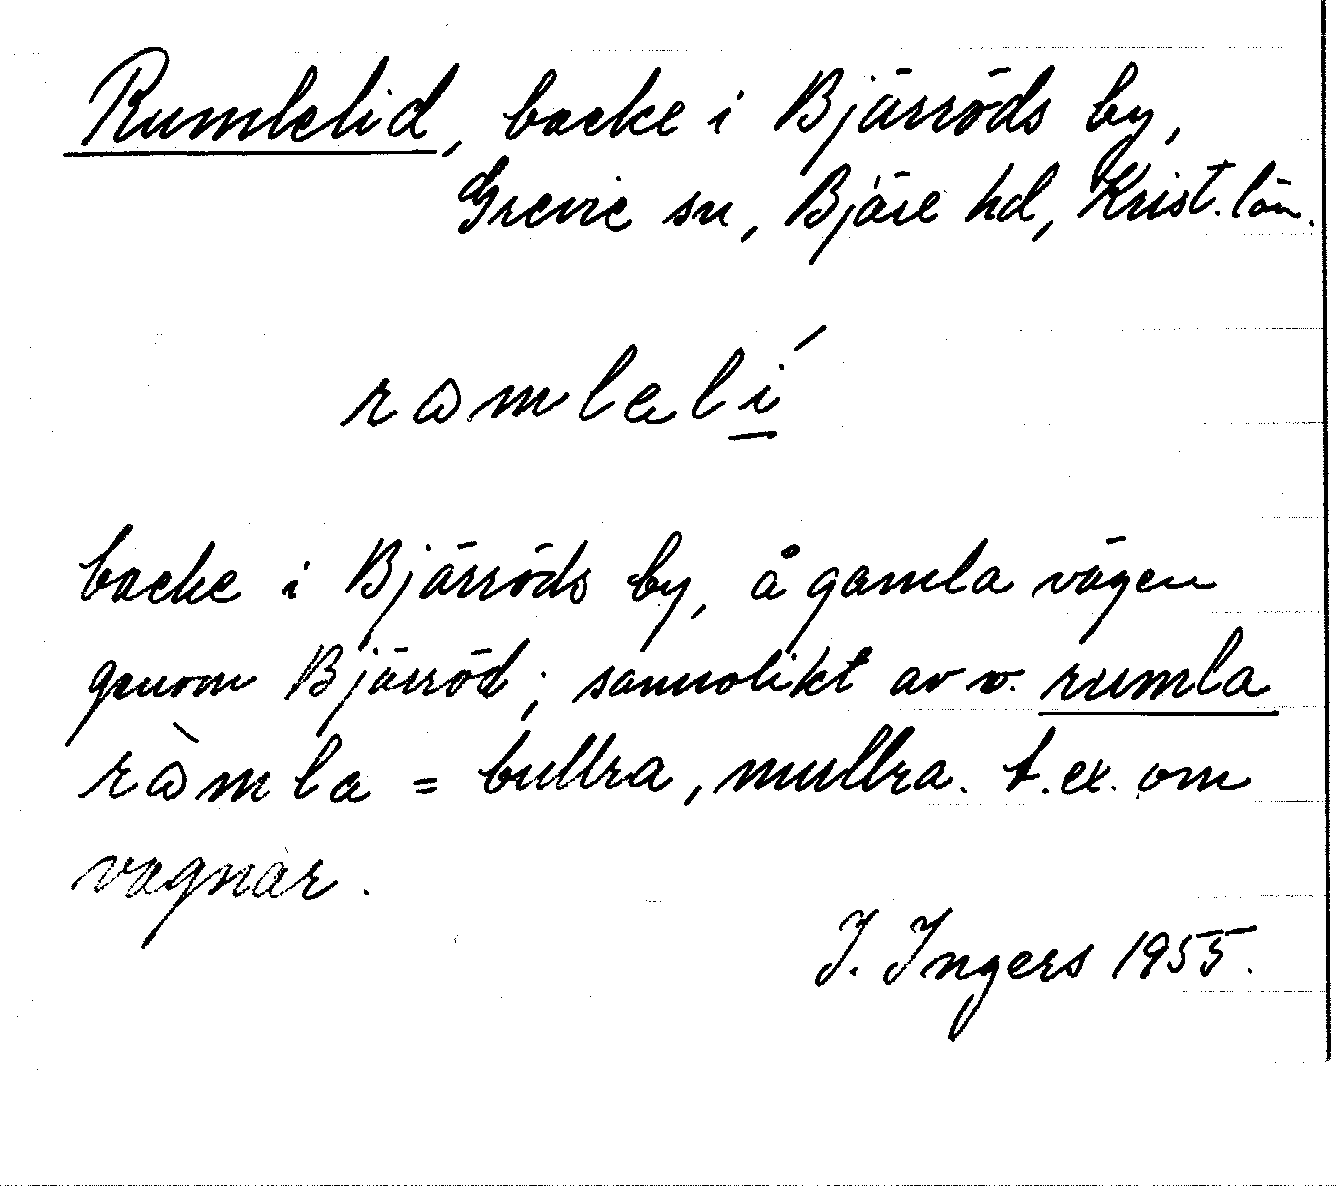 Rumlelid, backe i Bjärröds by,
Grevie sn, Bjäre hd, Krist. län.
rωmlɐlí
backe i Bjärröds by, å gamla vägen
genom Bjärröd; sannolikt av v. rumla
rὼmla = bullra, mullra. t. ex. om
vagnar.
I. Ingers 1955.